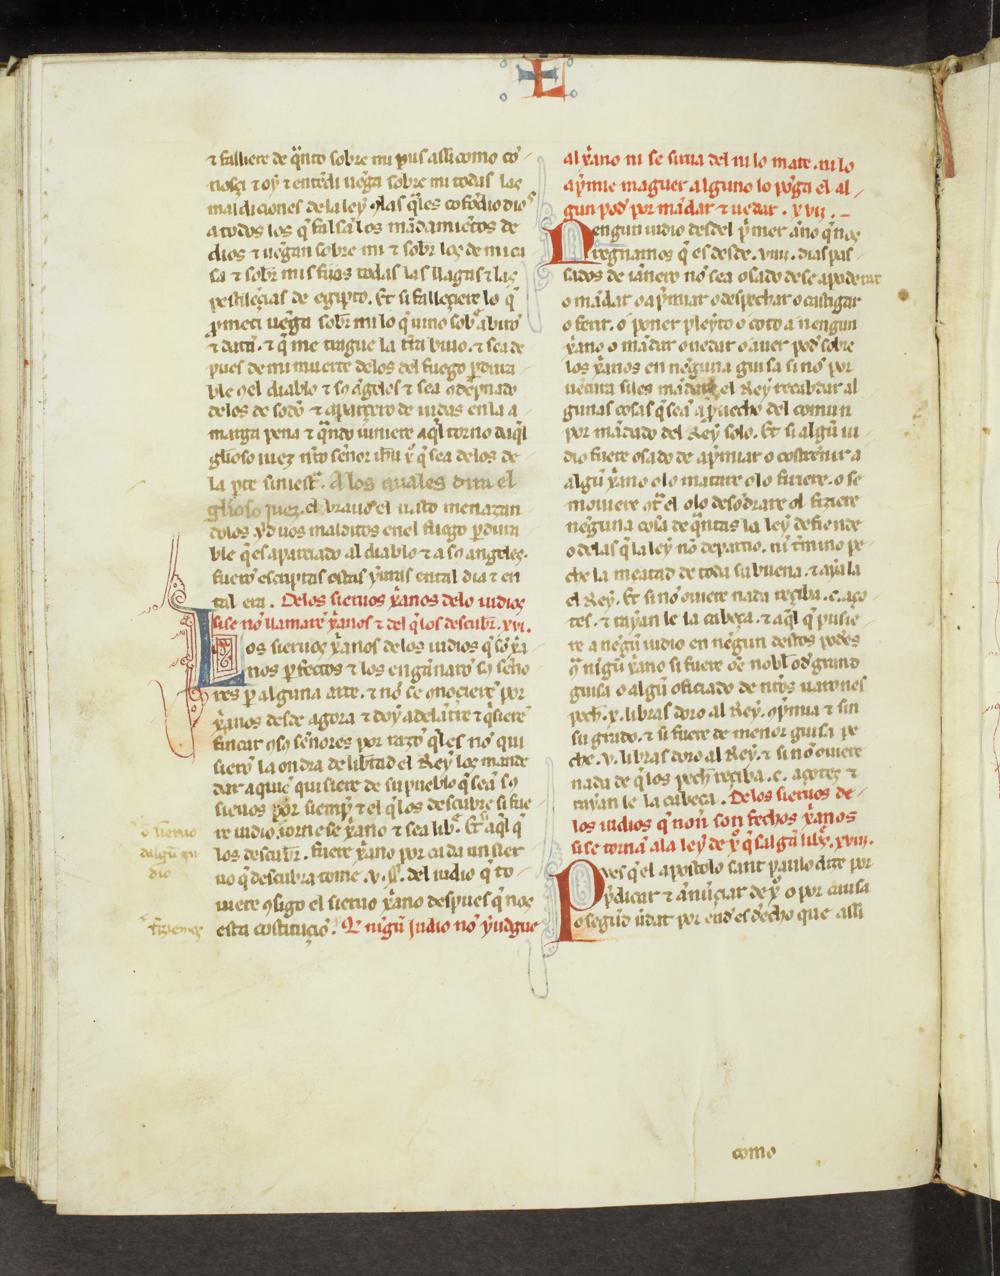 L
⁊ falliere de q̃nto sobre mi pus assi como co
nosçi ⁊ oy ⁊ entẽdi uẽga sobre mi todas las
maldiciones dela ley ꝯlas q̃les cofõdio dios
a todos los q̃ falsã los mãdamiẽtos de
dios ⁊ uẽgan sobre mi ⁊ sobr̃ los de mi ca
sa ⁊ sobr̃ mis fijos todas las llagas ⁊ las
pestilẽçias de egipto. Et si falleçiere lo q̃
ꝓmeti uẽga sobr̃ mi lo q̃ uino sob̃ abirõ
⁊ datã. ⁊ q̃ me tragua la tr̃ra biuo. ⁊ sea de
pues de mi muerte delos del fuego ꝑdura
ble ꝯel diablo ⁊ sꝯ ãgeles ⁊ sea ꝯdẽpnado
delos de sodõ ⁊ aparçero de iudas en la a
marga pena ⁊ q̃ndo uiniere aq̃l torno daq̃l
gl̃ioso iuez nr̃o señor ih̃u x̃ q̃ sea delos de
la ꝑte siniestr̃. A los quales dira el
gl̃ioso juez. el brauo el iusto menazan
dolos yd uos malditos enel fuego ꝑdura
ble q̃ es apareiado al diablo ⁊ a sꝯ angeles.
fuerõ escriptas estas yuras en tal dia ⁊ en
tal era. Delos sieruos xᷓanos delo iudios
si se nõ llamarẽ xᷓanos ⁊ del q̃ los descubr̃. xvi.
Los sieruos xᷓanos delos iudios q̃ sõ xᷓa
nos ꝑfectos ⁊ los engãnarõ sꝯ seño
res ꝑ alguna arte. ⁊ nõ se ꝯnociere por
xᷓanos desde agora ⁊ doy adelãtre ⁊ q̃siere
fincar ꝯsꝯ señores por razõ q̃ les nõ qui
sierõ la ondra de lib̃tad el Rey los mande
dar a quiẽ quisiere de su pueblo q̃ seã sꝯ
sieruos por siempr̃ ⁊ el q̃ los descubre si fue
re iudio. torne se xᷓano ⁊ sea lib̃. Et aq̃l q̃
los descubr̃. fuere xᷓano por cada un sier
uo q̃ descubra tome .v. s̃. del iudio q̃ to
uiere ꝯsigo el sieruo xᷓano despues q̃ nos
esta costituçiõ. Q̃ nigũ judio nõ yudgue
o sieruo
dalgũ iu
dio
fiziemos
al xᷓano ni se sirua del ni lo mate. ni lo
apr̃mie maguer alguno lo põga el al
gun pod̃ por mãdar ⁊ uedar. xvii.
Nengun iudio desdel pr̃mer año q̃ nos
regnamos q̃ es desde. viiii. dias pas
sados de ianero nõ sea osado dese apoderar
o mãdar o apr̃miar o despechar o castigar
o ferir. o poner pleyto o coto a nengun
xᷓano o mãdar o uedar o auer pod̃ sobre
los xᷓanos en nenguna guisa sinõ por
uẽtura si les mãdare el Rey recabdar al
gunas cosas q̃ seã a ꝓuecho del comun
por mãdado del Rey solo. Et si algũ iu
dio fuere osado de apr̃miar o costreñir a
algũ xᷓano o lo matare o lo firiere. o se
mouiere ꝯtr̃ el o lo desõdrare ol fiziere
nẽguna cosa de q̃ntas la ley defiende
o delas q̃ la ley nõ departio. ni tr̃mino pe
che la meatad de toda su buena. ⁊ ayala
el Rey. Et si nõ ouiere nada reçiba .c. aço
tes. ⁊ rayan le la cabeça. ⁊ aq̃l q̃ pusie
re a negũ iudio en nẽgun destos podes
q̃ nigũ xᷓano si fuere oẽ nobl̃ o de grand
guisa o algũ oficiado de nr̃os uarones
pech̃ .x. libras doro al Rey. ꝯpr̃mia ⁊ sin
su grado. ⁊ si fuere de menor guisa pe
che .v. libras doro al Rey. ⁊ si nõ ouiere
nada de q̃ los pech̃ reçiba .c. açotes ⁊
rayan le la cabeça. Delos sieruos de
los iudios q̃ non son fechos xᷓanos
si se tornã ala ley de xᷓo q̃ salgã lib̃s. xviii.
Pves q̃ el apostolo sant paulo dize por
pr̃dicar ⁊ anũçiar de xᷓo por causa
o segũd uerdat por end es dr̃echo que assi
como